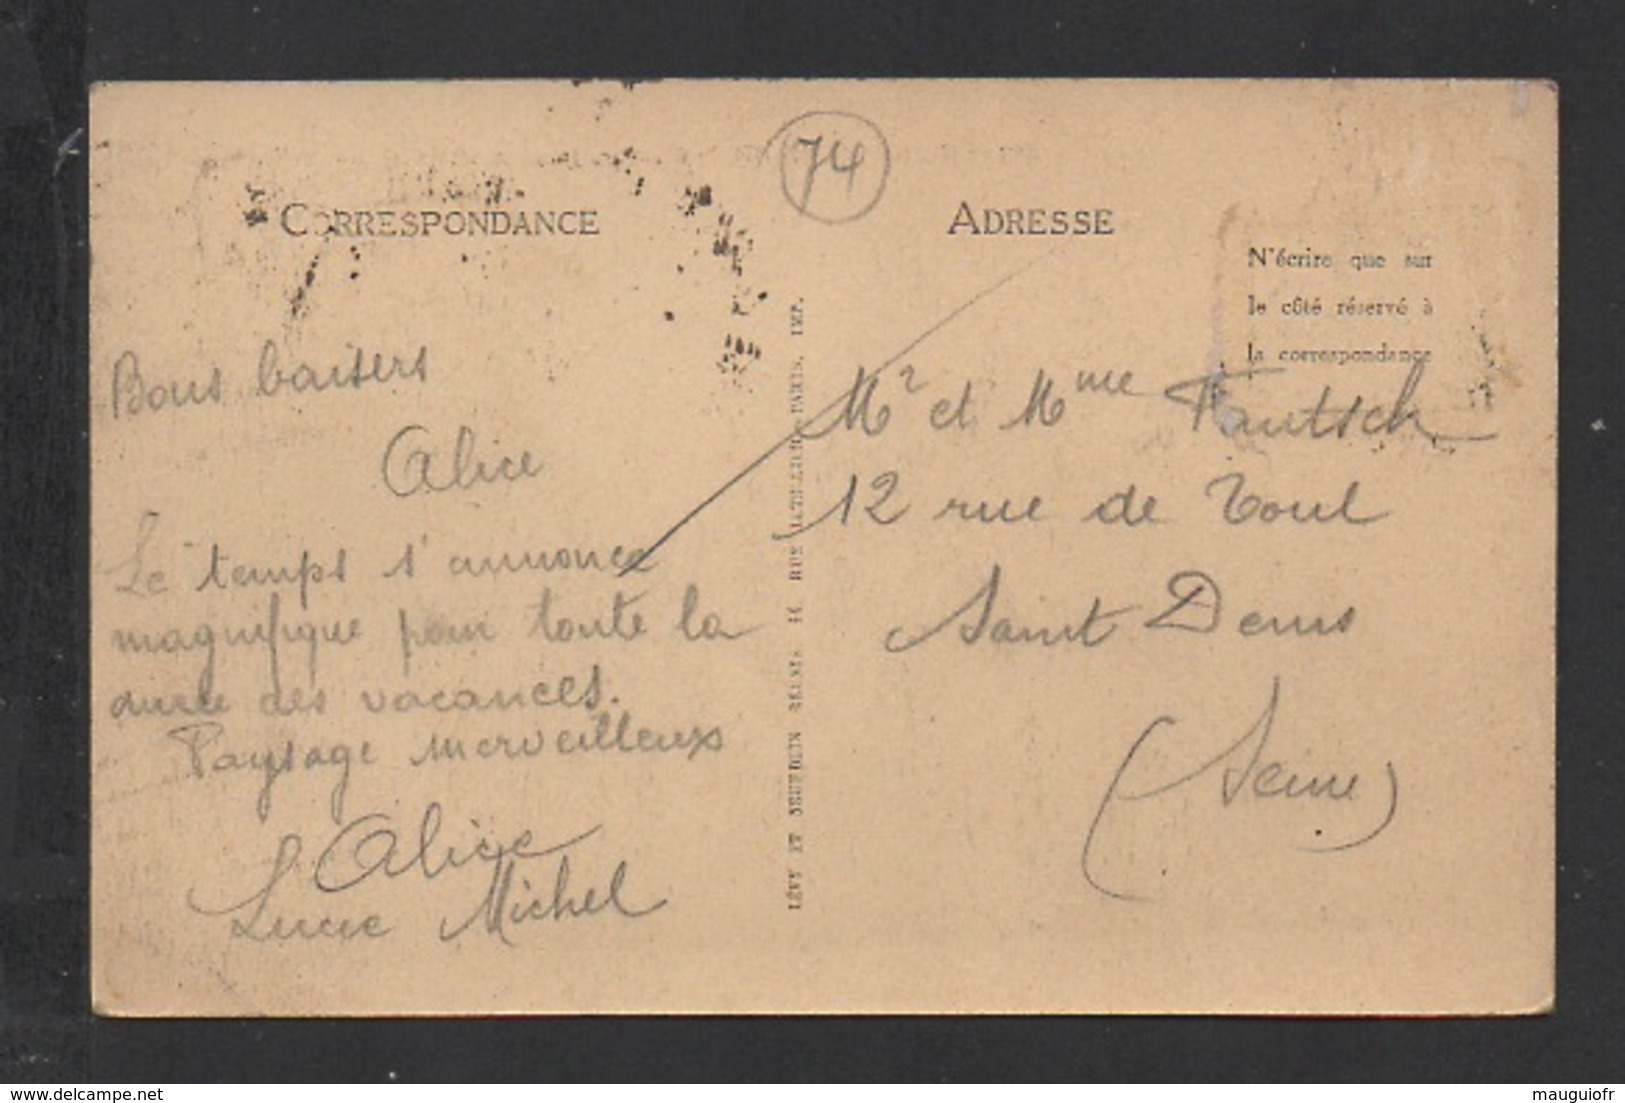 74
CORRESPONDANCE
Bons baisers
Alice
Le temps s'annonce
magnifique pour toute la
durée des vacances.
Paysage merveilleux
Alice
Lucie Michel
LÉVY ET NEURDEIN RÉUNIS, 44, RUE LETELLIER, PARIS. IMP.
ADRESSE
N'écrire que sur
le côté réservé à
la correspondance
Mr et Mme Fautsch
12 rue de Toul
Saint Denis
(Seine)
delcampe.net
mauguiofr